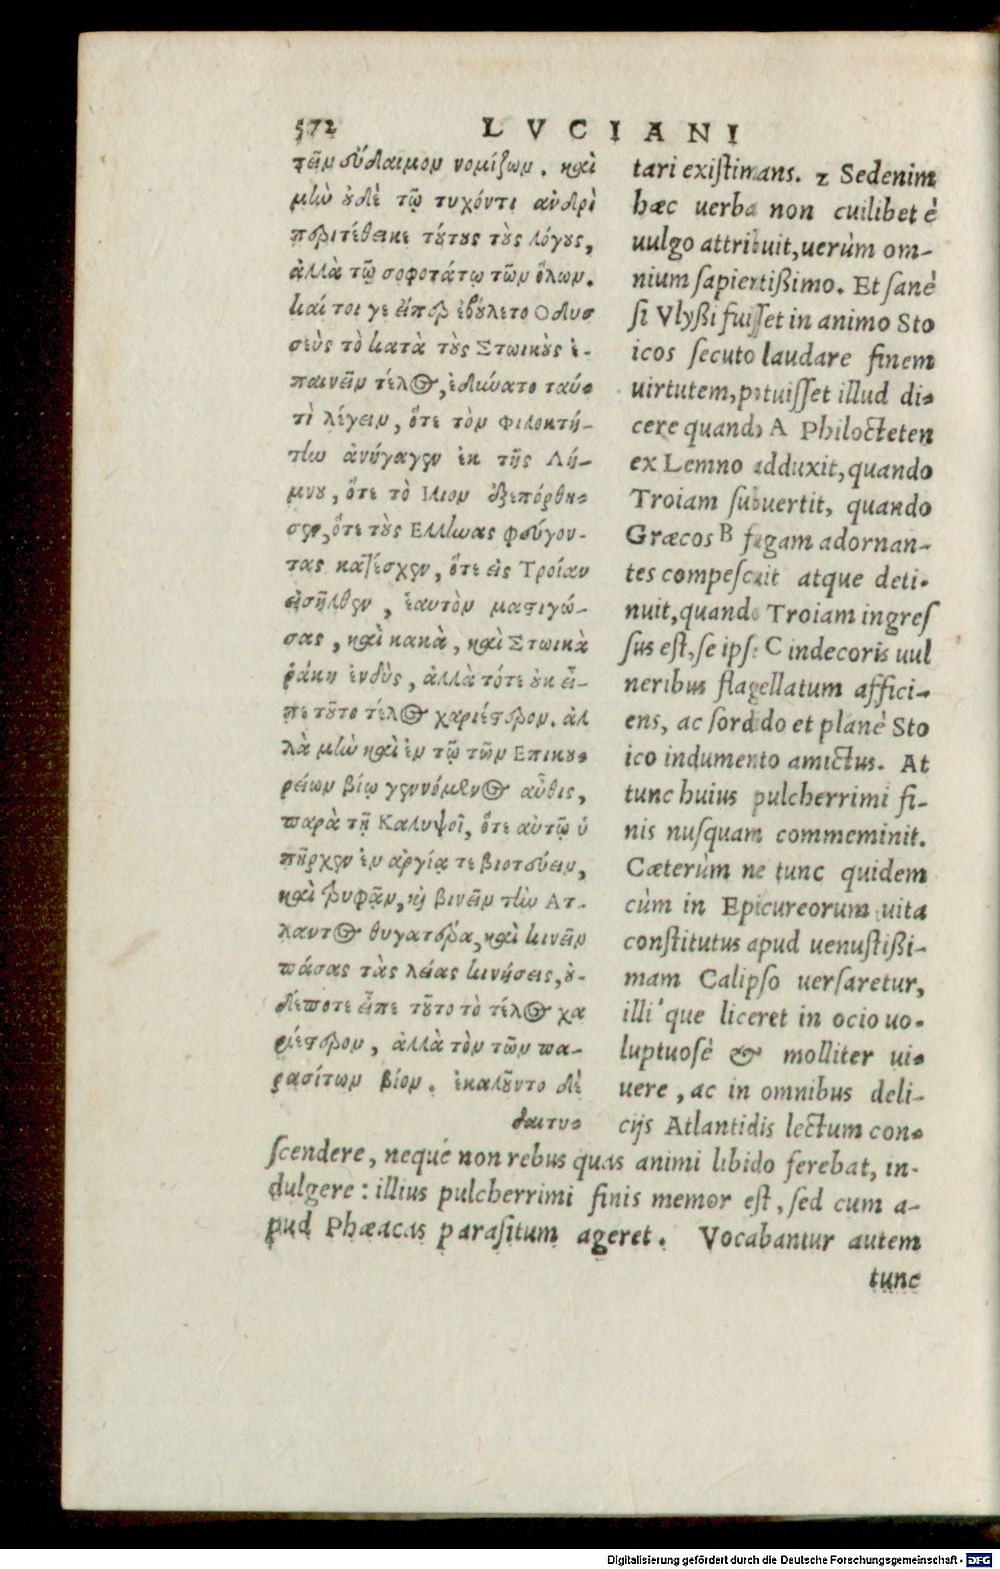 572 LVCIANI
τεῖν εὔδαιμον νομίζων. καὶ
μὴν οὐδὲ τῷ τυχόντι ἀνδρὶ
περιτέθεικε τούτους τοὺς λόγους,
ἀλλὰ τῷ σοφοτάτῳ τῶν ὅλων.
καίτοι γε εἴπερ ἐβούλετο Οδυσ
σεὺς τὸ κατὰ τοὺς Στωικοὺς ἐ-
παινεῖν τέλος, ἐδύνατο ταύ-
τὶ λέγειν, ὅτε τὸν Φιλοκτή-
την ἀνήγαγεν ἐκ τῆς Λή-
μνου, ὅτε τὸ Ιλιον ἐξεπόρθη-
σεν, ὅτε τοὺς Ελληνας φεύγον-
τας κατέσχεν, ὅτε εἰς Τροίαν
εἰσῆλθεν, ἑαυτὸν μαστιγώ-
σας, καὶ κακὰ, καὶ Στωικὰ
ῥάκη ἐνδὺς, ἀλλὰ τότε οὐκ εἶ-
πε τοῦτο τέλος χαριέστερον. ἀλ
λὰ μὴν καὶ ἐν τῷ τῶν Επικου-
ρείων βίῳ γενόμενος αὖθις,
παρὰ τῇ Καλυψοῖ, ὅτε αὐτῷ ὑ
πῆρχεν ἐν ἀργίᾳ τε βιοτεύειν,
καὶ τρυφᾷν, καὶ βινεῖν τὴν Ατ-
λαντος θυγατέρα, καὶ κινεῖν
πάσας τὰς λείας κινήσεις, οὐ-
δέποτε εἶπε τοῦτο τὸ τέλος χα
ριέστερον, ἀλλὰ τὸν τῶν πα-
ρασίτων βίον. ἐκαλοῦντο δὲ
δαιτυ-
tari existimans. z Sedenim
hæc uerba non cuilibet è
uulgo attribuit, uerùm om-
nium sapientißimo. Et sanè
si Vlyßi fuisset in animo Sto
icos secuto laudare finem
uirtutem, potuisset illud di-
cere quando A Philocteten
ex Lemno adduxit, quando
Troiam subuertit, quando
Græcos B fugam adornan-
tes compescuit atque deti-
nuit, quando Troiam ingres
sus est, se ipse C indecoris uul
neribus flagellatum affici-
ens, ac sordido et planè Sto
ico indumento amictus. At
tunc huius pulcherrimi fi-
nis nusquam commeminit.
Cæterùm ne tunc quidem
cùm in Epicureorum uita
constitutus apud uenustißi-
mam Calipso uersaretur,
illi'que liceret in ocio uo-
luptuosè & molliter ui-
uere, ac in omnibus deli-
cijs Atlantidis lectum con-
scendere, neque non rebus quas animi libido ferebat, in-
dulgere: illius pulcherrimi finis memor est, sed cum a-
pud Phæacas parasitum ageret. Vocabantur autem
tunc
Digitalisierung gefördert durch die Deutsche Forschungsgemeinschaft - DFG